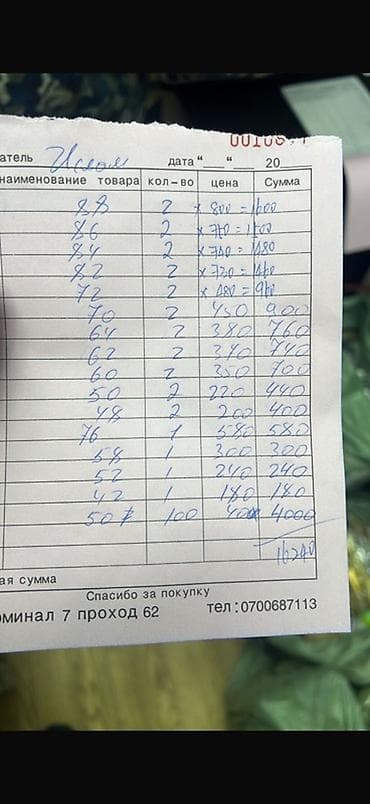 001084
атель Ислам дата "__"__ 20
наименование товара кол-во цена Сумма
88 2 x 800 = 1600
86 2 x 760 = 1500
84 2 x 740 = 1480
82 2 x 730 = 1460
72 2 x 480 = 960
70 2 450 900
64 2 380 760
62 2 370 740
60 2 350 700
50 2 220 440
48 2 200 400
76 1 580 580
58 1 300 300
52 1 240 240
42 1 180 180
50 100 40 4000
16240
ая сумма
Спасибо за покупку
рминал 7 проход 62 тел:0700687113